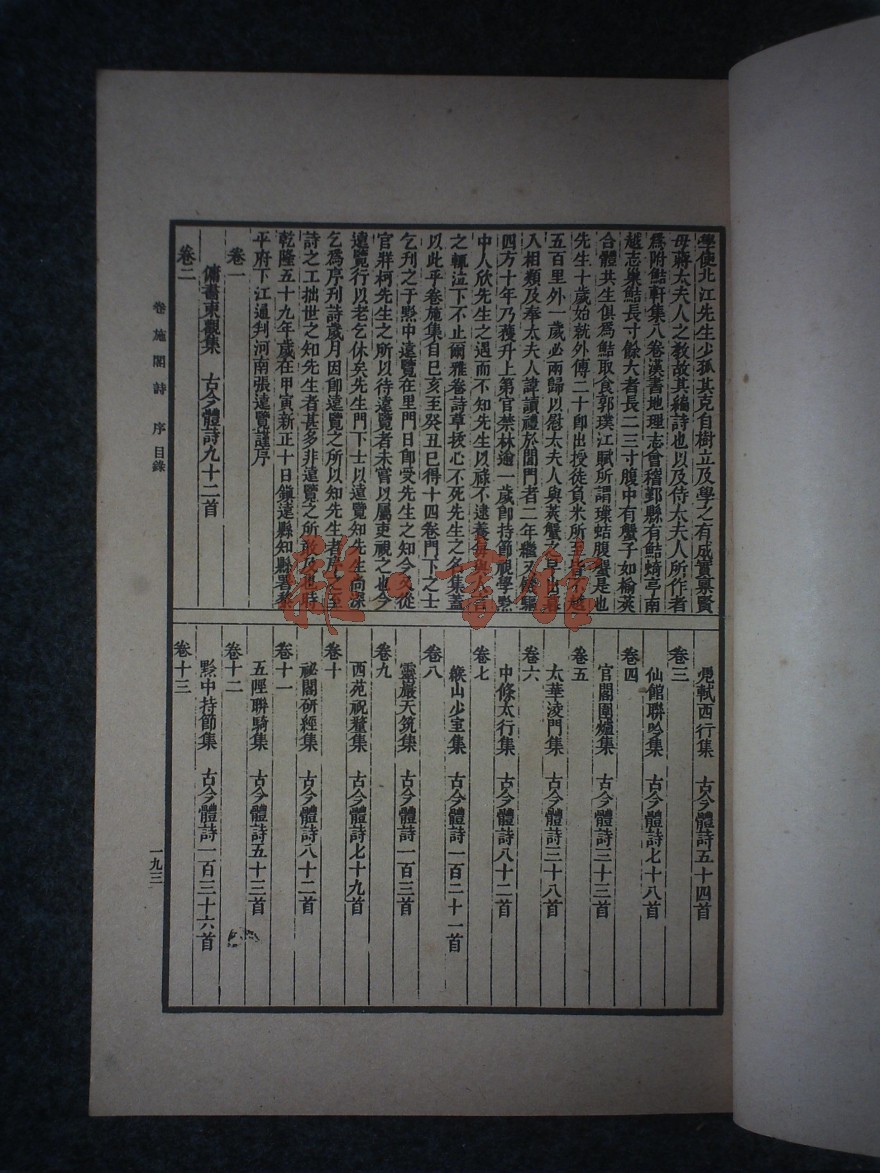 學使北江先生少孤其克自樹立及學之有成實稟賢
母蔣太夫人之教故其編詩也以及侍太夫人所作者
爲附鮚軒集八卷漢書地理志會稽鄞縣有鮚埼亭南
越志巢鮚長寸餘大者長二三寸腹中有蟹子如榆莢
合體共生俱爲鮚取食郭璞江賦所謂璅蛣腹蟹是也
先生十歲始就外傅二十卽出授徒負米所至皆不越
五百里外一歲必兩歸以慰太夫人與莢蟹之早出暮
入相類及奉太夫人諱讀禮於閒門者二年繼又
四方十年乃獲升上第官禁林逾一歲卽持節視學黔
中人欣先生之遇而不知先生以祿不逮養每與人言
之輒泣下不止爾雅卷詩草拔心不死先生之名集蓋
以此乎卷施集自己亥至癸丑已得十四卷門下之士
乞刊之于黔中遠覽在里門日卽受先生之知今又從
官牂柯先生之所以待遠覽者未嘗以屬吏視之也今
遠覽行以老乞休矣先生門下士以遠覽知先生尙深
乞爲序刊詩歲月因卽遠覽之所以知先生者序之至
詩之工拙世之知先生者甚多非遠覽之所敢及也時
乾隆五十九年歲在甲寅新正十日鎭遠縣知縣署黎
平府下江通判河南張遠覽謹序
卷一
傭書東觀集 古今體詩九十二首
卷二
卷施閣詩 序 目錄
一九三
凭軾西行集 古今體詩五十四首
卷三
仙館聯吟集 古今體詩七十八首
卷四
官閣圍爐集 古今體詩三十三首
卷五
太華淩門集 古今體詩三十八首
卷六
中條太行集 古今體詩八十二首
卷七
緱山少室集 古今體詩一百二十一首
卷八
靈巖天筑集 古今體詩一百三首
卷九
西苑祝釐集 古今體詩七十九首
卷十
祕閣硏經集 古今體詩八十二首
卷十一
五陘聯騎集 古今體詩五十三首
卷十二
黔中持節集 古今體詩一百三十六首
卷十三